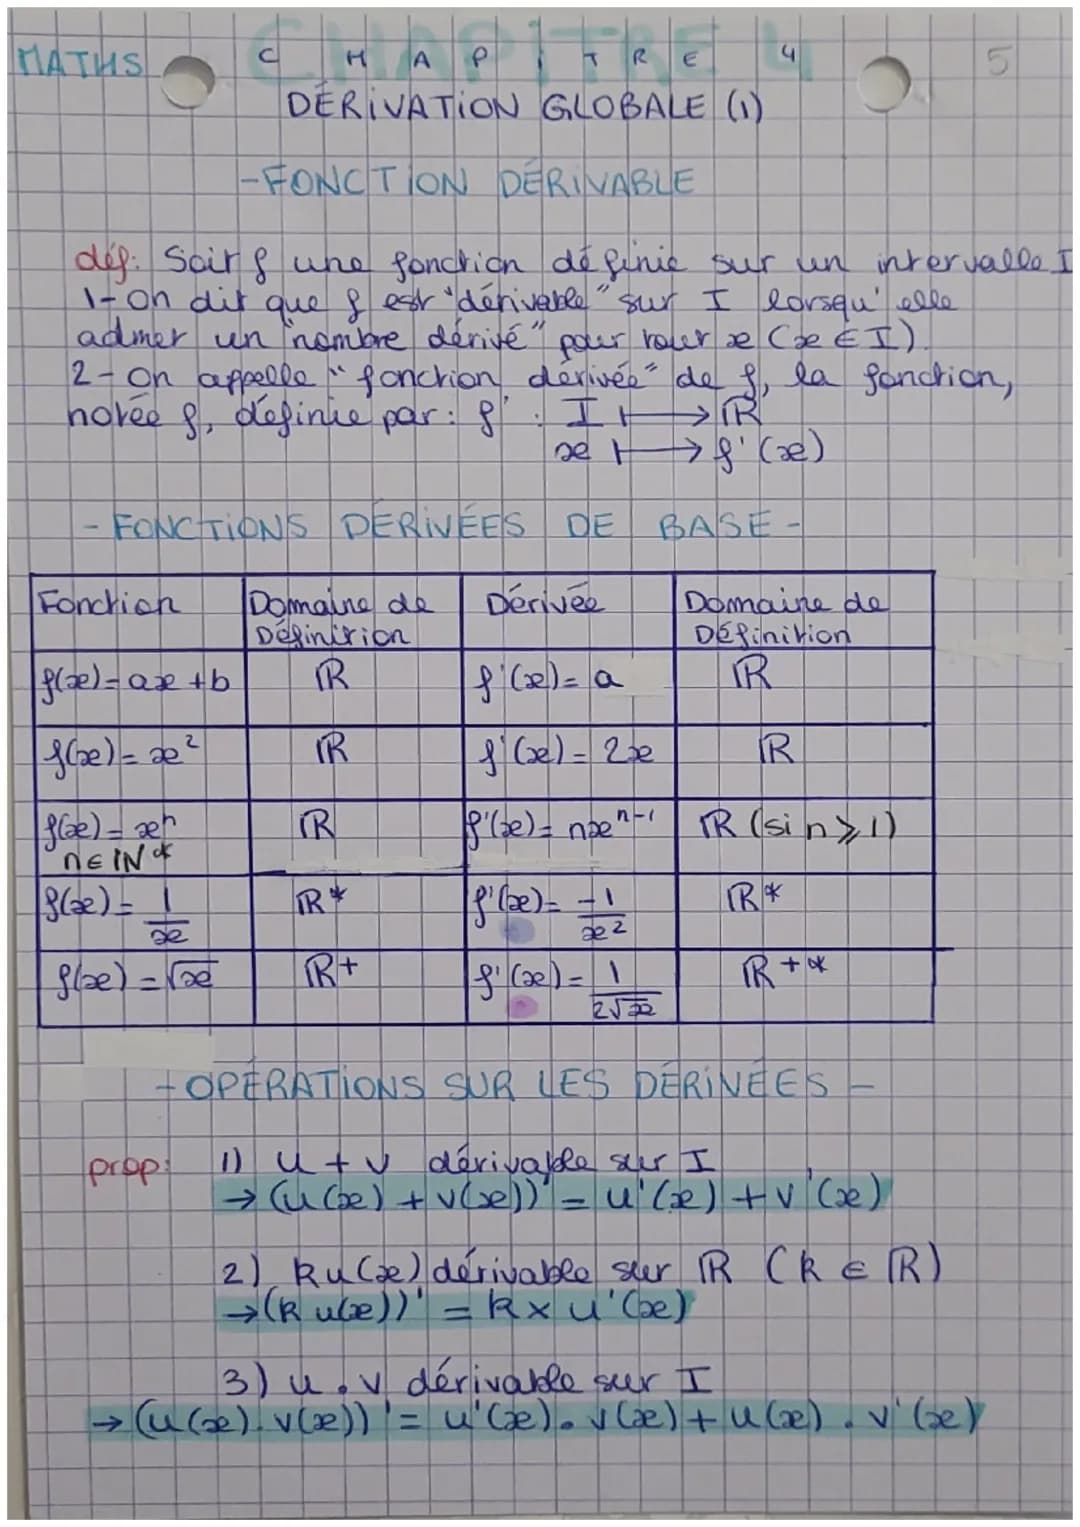 MATHS
CHAPITRE 4
5
DÉRIVATION GLOBALE (1)
-FONCTION DÉRIVABLE
déf: Soit f une fonction définie sur un intervalle I
1- On dit que f est "dérivable" sur I lorsqu'elle
admet un "nombre dérivé" pour tout x (x ∈ I).
2- On appelle "fonction dérivée" de f, la fonction,
notée f, définie par: f' : I ↦ ℝ
x ↦ f'(x)
- FONCTIONS DÉRIVÉES DE BASE -
Fonction | Domaine de Définition | Dérivée | Domaine de Définition
f(x) = ax + b | ℝ | f'(x) = a | ℝ
f(x) = x² | ℝ | f'(x) = 2x | ℝ
f(x) = xⁿ n ∈ ℕ* | ℝ | f'(x) = nxⁿ⁻¹ | ℝ (si n ⩾ 1)
f(x) = 1/x | ℝ* | f'(x) = -1/x² | ℝ*
f(x) = √x | ℝ+ | f'(x) = 1/2√x | ℝ+*
- OPÉRATIONS SUR LES DÉRIVÉES -
prop: 1) u + v dérivable sur I
→ (u(x) + v(x))' = u'(x) + v'(x)
2) ku(x) dérivable sur ℝ (k ∈ ℝ)
→ (k u(x))' = k × u'(x)
3) u . v dérivable sur I
→ (u(x) . v(x))' = u'(x) . v(x) + u(x) . v'(x)